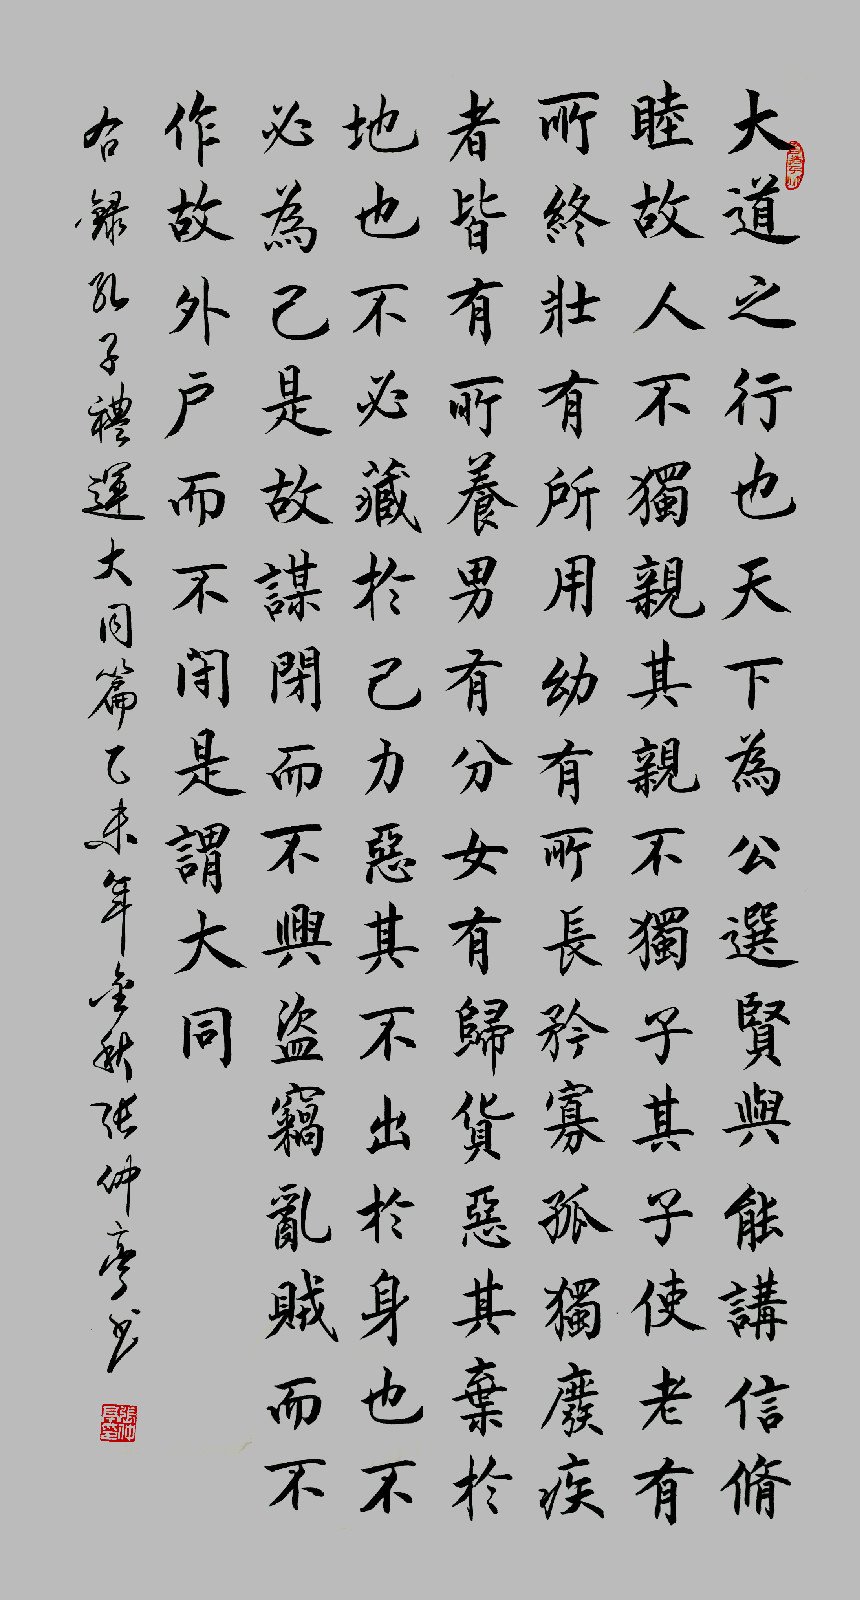 大道之行也天下為公選賢與能講信脩
睦故人不獨親其親不獨子其子使老有
所終壯有所用幼有所長矜寡孤獨廢疾
者皆有所養男有分女有歸貨惡其棄於
地也不必藏於己力惡其不出於身也不
必為己是故謀閉而不興盜竊亂賊而不
作故外户而不閇是謂大同
右錄孔子禮運大同篇乙未年金秋张仲亭书